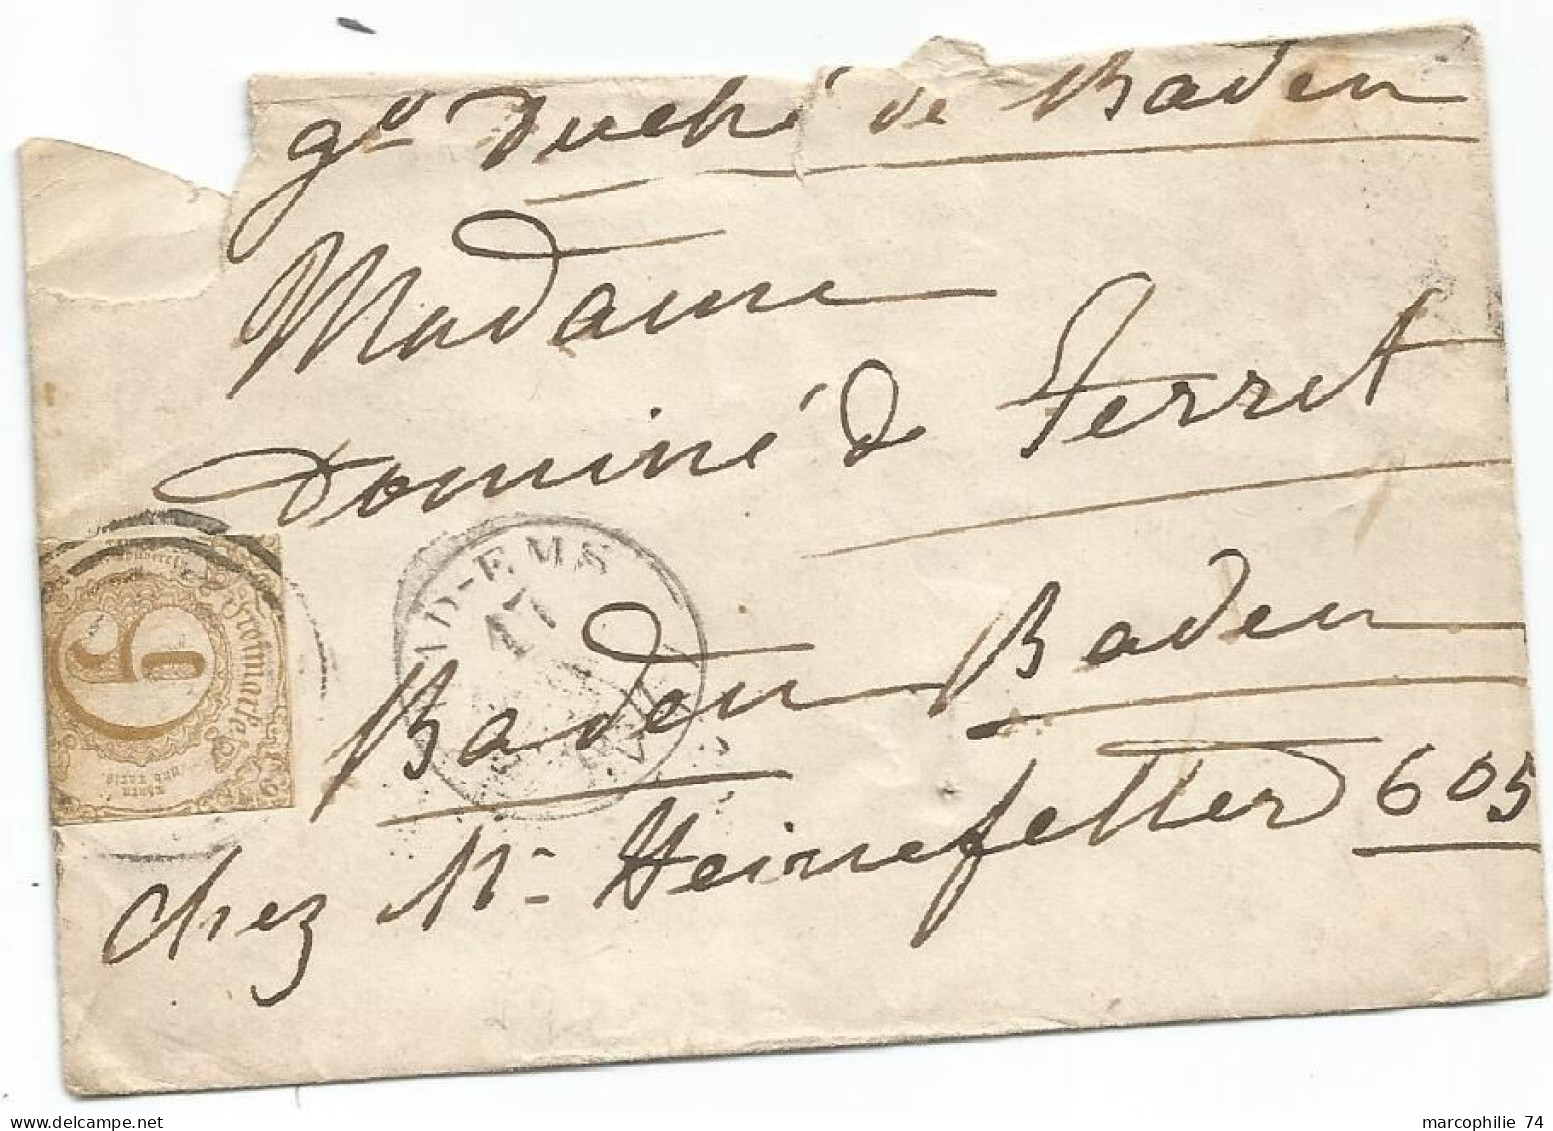 gd Duché de Baden
Madame
Dominé de Ferret
Baden Baden
chez Mr Heinefetter 605
BAD-EMS
17
9
Freimarke
Thurn
und Taxis
marcophilie 74